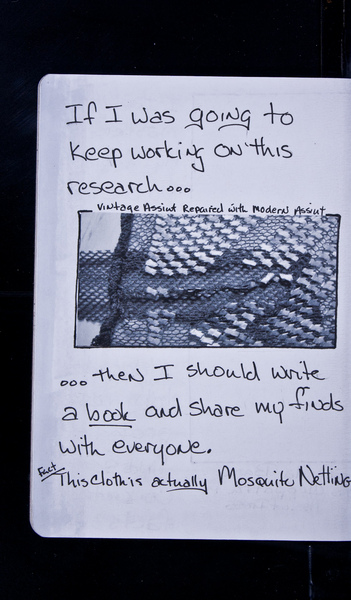 If I was going to
Keep working on this
research...
Vintage Assiut Repaired with Modern Assiut
...then I should write
a book and share my finds
with everyone.
Fact This cloth is actually Mosquito Netting